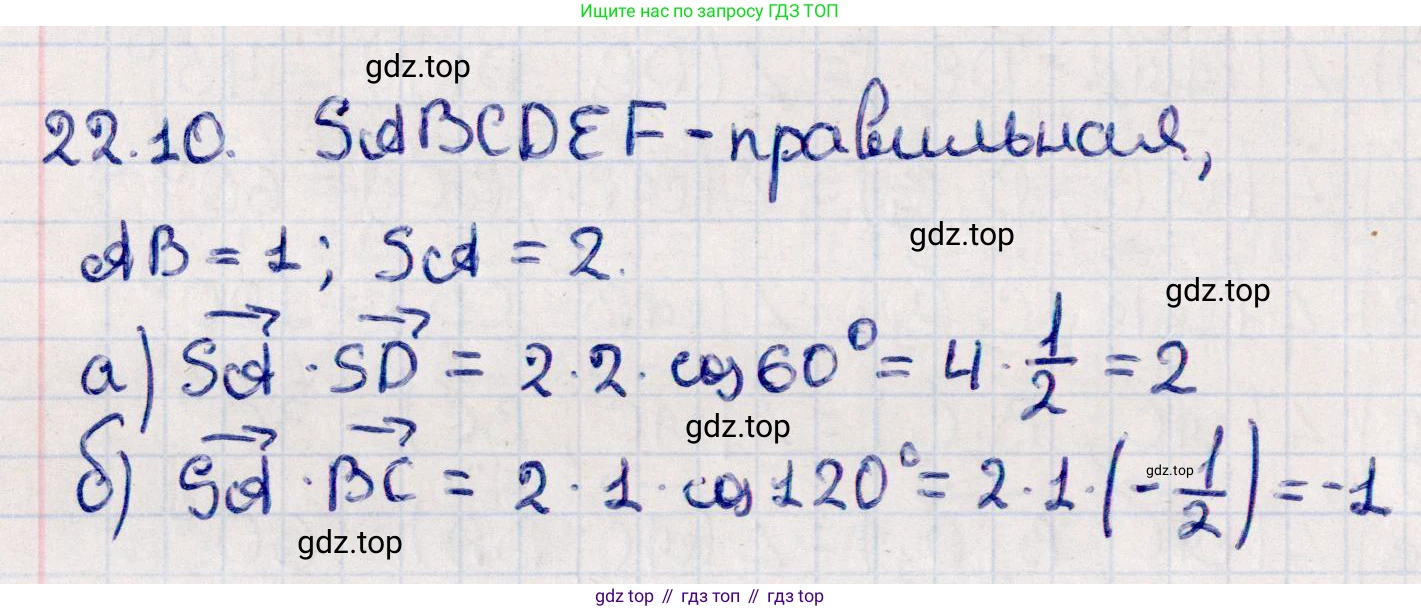 Ищите нас по запросу ГДЗ ТОП
gdz.top
22.10. SABCDEF - правильная,
AB = 1; SA = 2.
gdz.top
gdz.top
а) \overrightarrow{SA} · \overrightarrow{SD} = 2 · 2 · cos 60° = 4 · \frac{1}{2} = 2
gdz.top
б) \overrightarrow{SA} · \overrightarrow{BC} = 2 · 1 · cos 120° = 2 · 1 · (-\frac{1}{2}) = -1
gdz.top
gdz.top
gdz top // гдз топ // гдз top